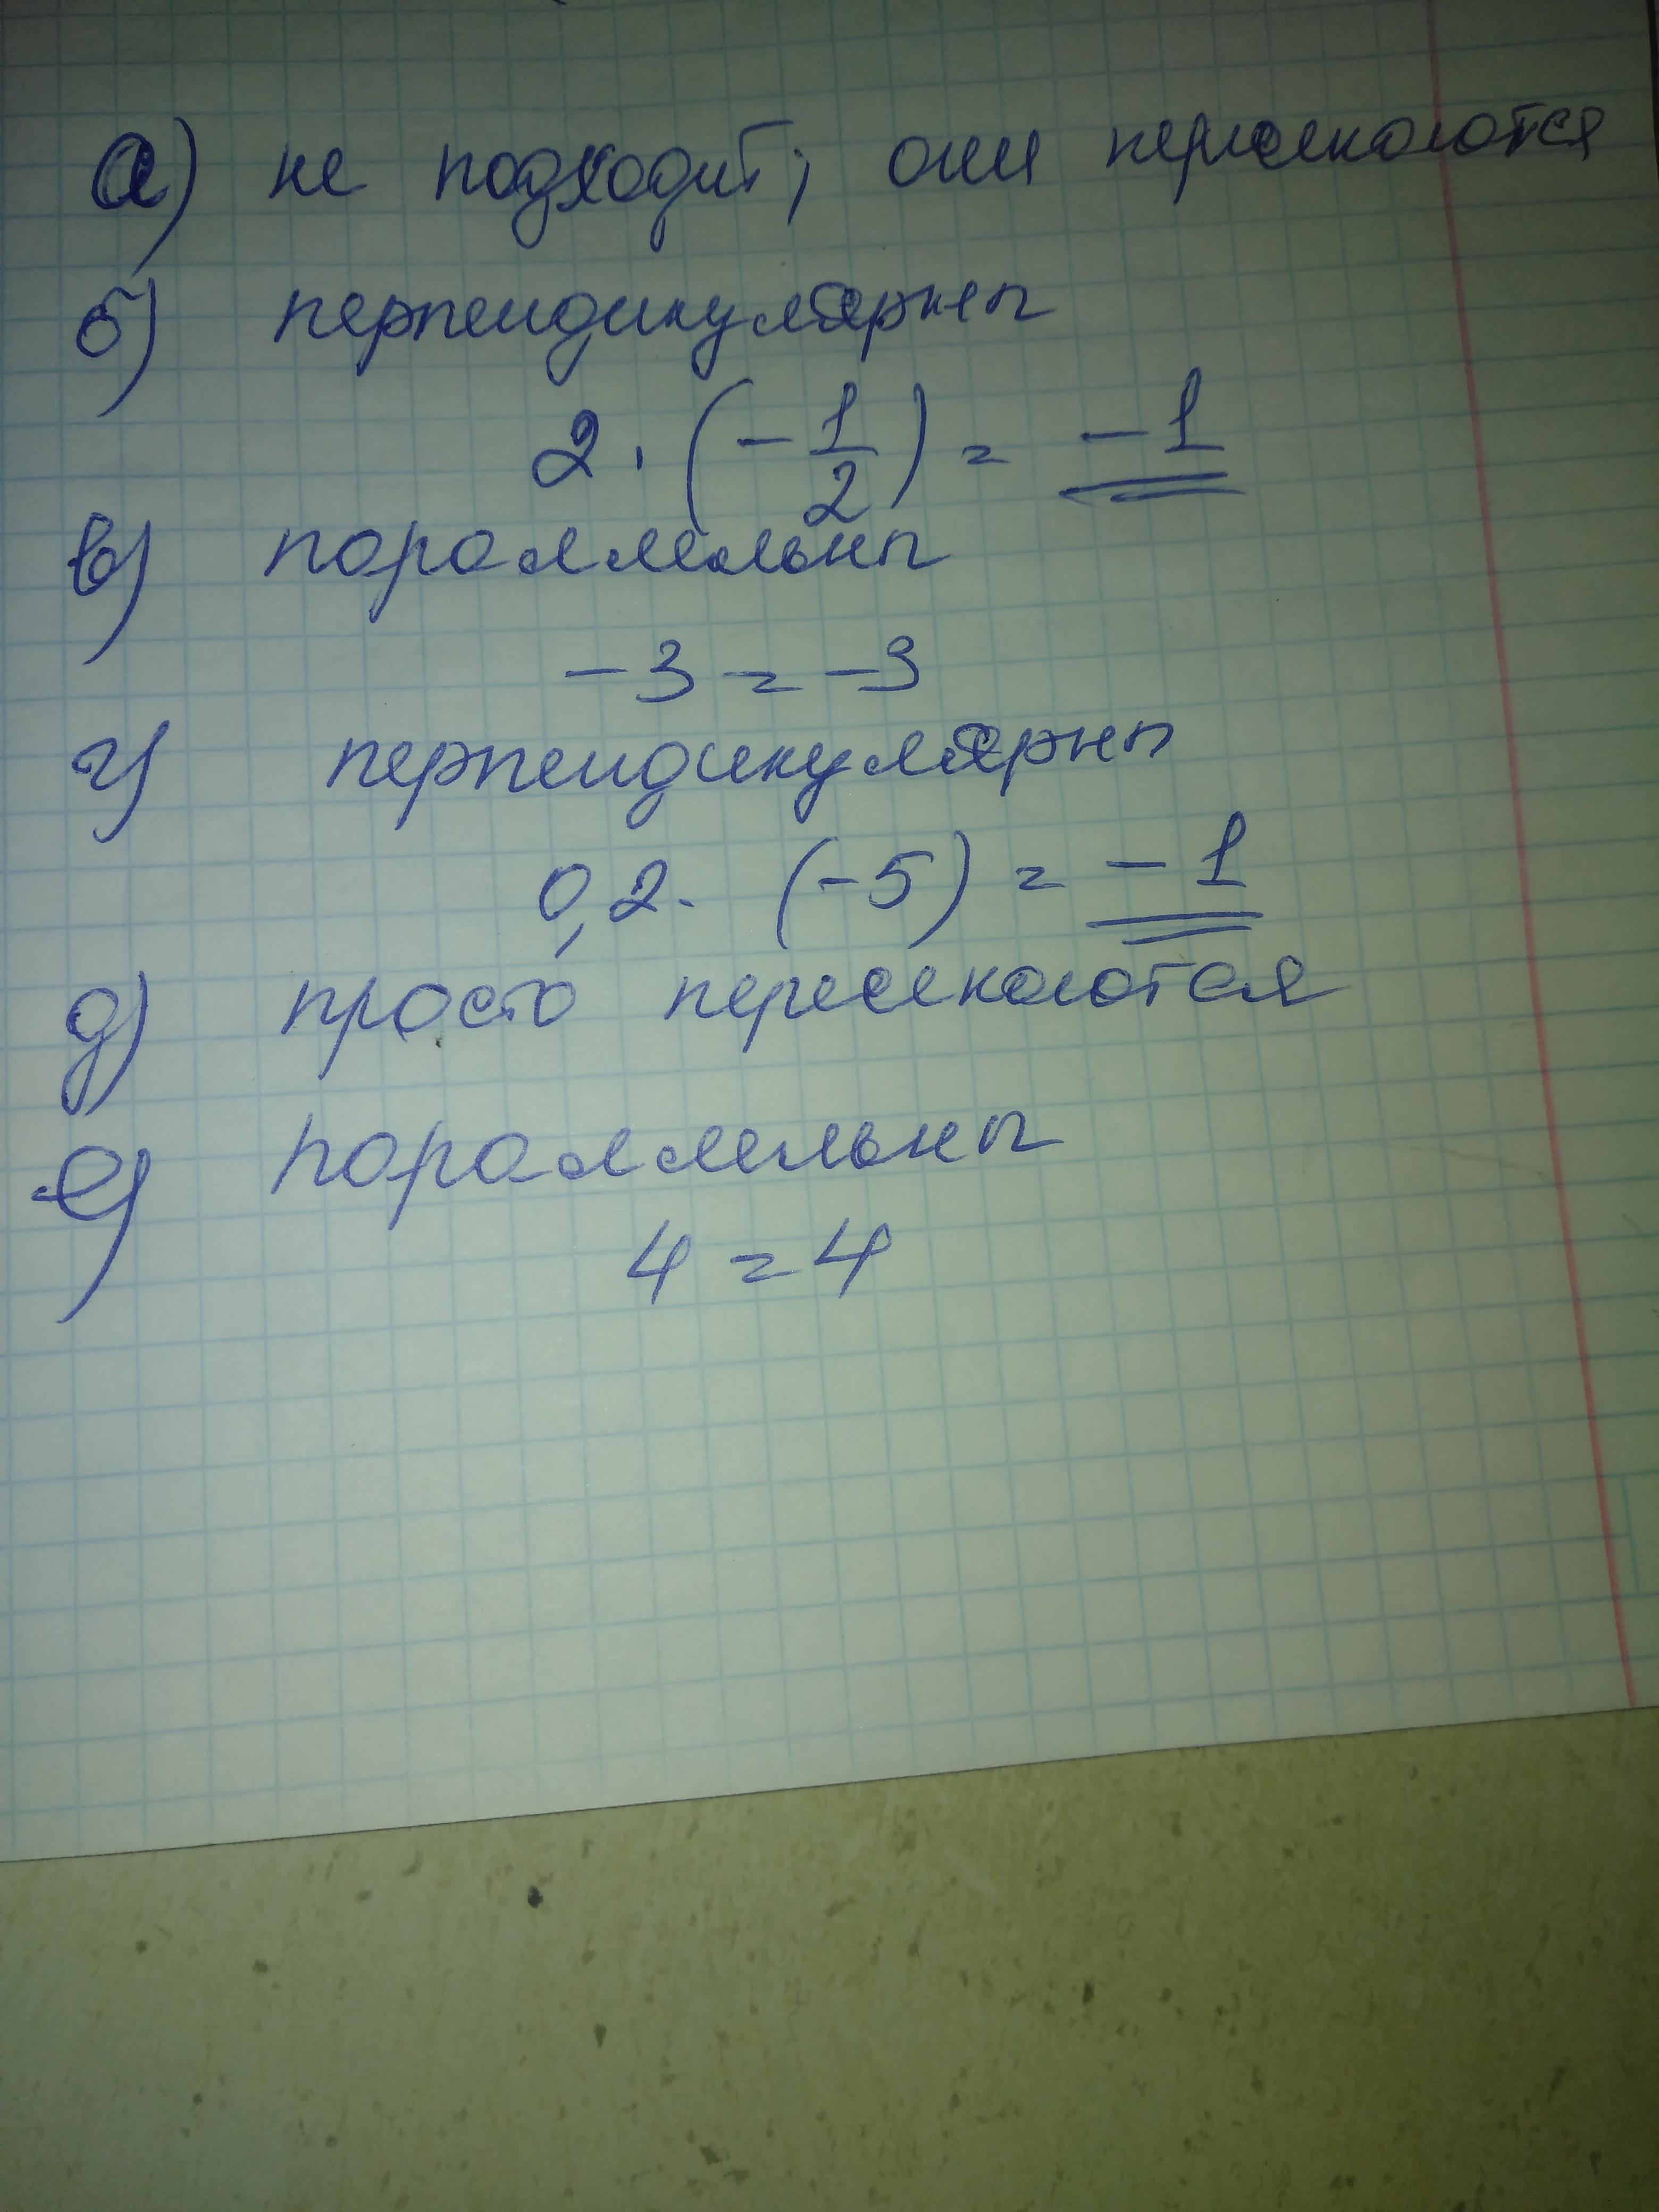 а) не подходит; они пересекаются
б) перпендикулярны
2 · (-1/2) = -1
в) пораллельны
-3 = -3
г) перпендикулярны
0,2 · (-5) = -1
д) просто пересекаются
е) пораллельны
4 = 4